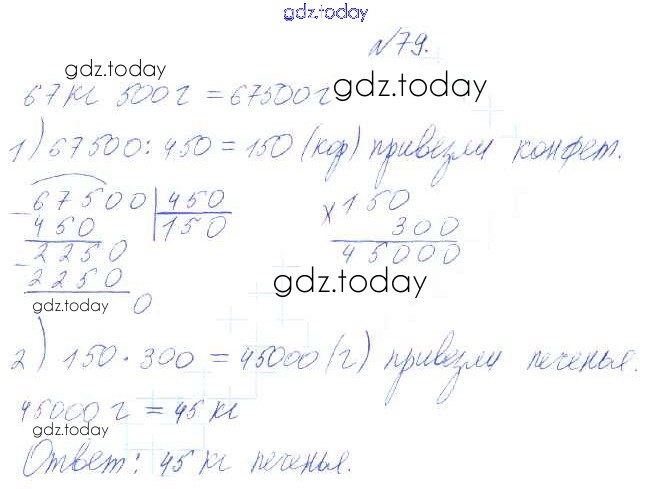 gdz.today
№79.
gdz.today
67 кг 500 г = 67500 г
gdz.today
1) 67500 : 450 = 150 (кор) привезли конфет.
67500 | 450
- 450 150
2250
- 2250
0
× 150
300
45000
gdz.today
gdz.today
2) 150 · 300 = 45000 (г) привезли печенья.
45000 г = 45 кг
gdz.today
Ответ: 45 кг печенья.